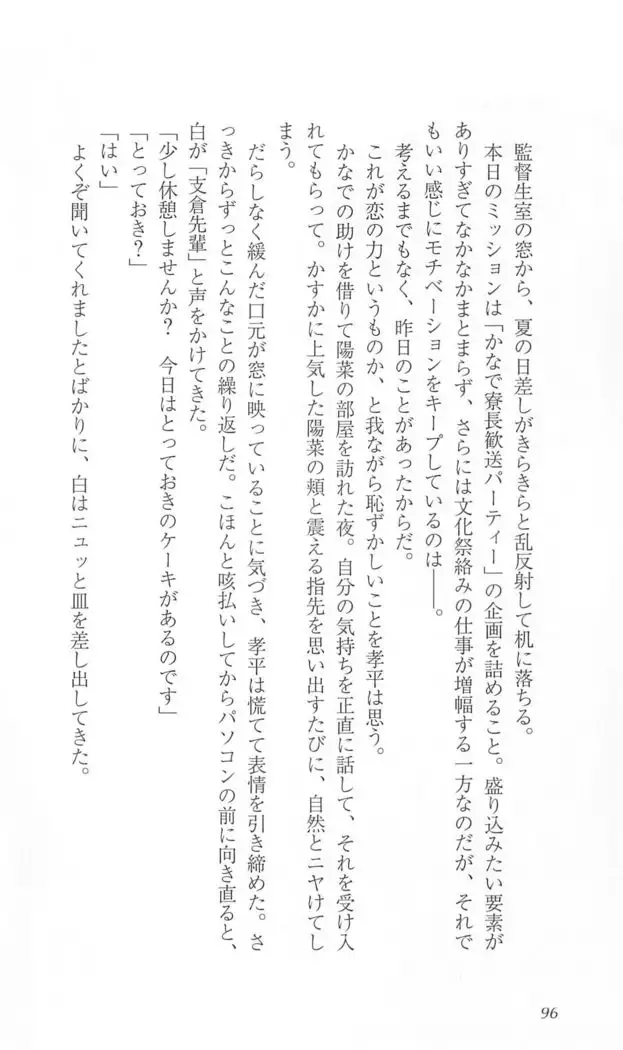 監督生室の窓から、夏の日差しがきらきらと乱反射して机に落ちる。
本日のミッションは「かなで寮長歓送パーティー」の企画を詰めること。盛り込みたい要素が
ありすぎてなかなかまとまらず、さらには文化祭絡みの仕事が増幅する一方なのだが、それで
もいい感じにモチベーションをキープしているのは――。
考えるまでもなく、昨日のことがあったからだ。
これが恋の力というものか、と我ながら恥ずかしいことを孝平は思う。
かなでの助けを借りて陽菜の部屋を訪れた夜。自分の気持ちを正直に話して、それを受け入
れてもらって。かすかに上気した陽菜の頬と震える指先を思い出すたびに、自然とニヤけてし
まう。
だらしなく緩んだ口元が窓に映っていることに気づき、孝平は慌てて表情を引き締めた。さ
っきからずっとこんなことの繰り返しだ。こほんと咳払いしてからパソコンの前に向き直ると、
白が「支倉先輩」と声をかけてきた。
「少し休憩しませんか？　今日はとっておきのケーキがあるのです」
「とっておき？」
「はい」
よくぞ聞いてくれましたとばかりに、白はニュッと皿を差し出してきた。
96